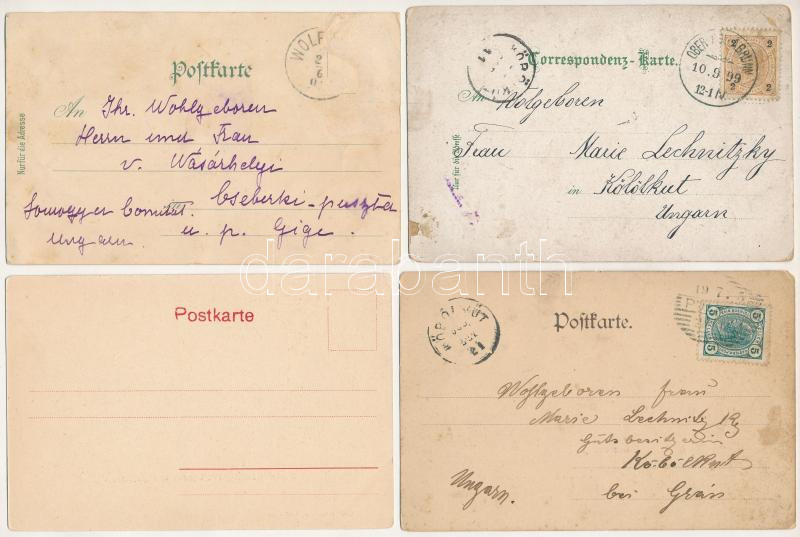 Postkarte
WOLF
Nur für die Adresse
An Ihr. Wohlgeboren
Herrn und Frau
v. Wásárhelyi
Somogyer Comitat. Cseberki-puszta
Ungarn u. p. Gige.
Correspondenz-Karte.
10.9.99
12-1N
2 2
2 2
An Holgeboren
Frau Marie Lechnitzky
in Köbölkut
Ungarn
Nur für die Adresse
darabanth
Postkarte
Postkarte.
KÖBÖLKÚT
19 7
5 5
5 5
Wohlgeboren Frau
Marie Lechnitzky
Gutsbesitzerin
Köbölkut
Ungarn. bei Grán